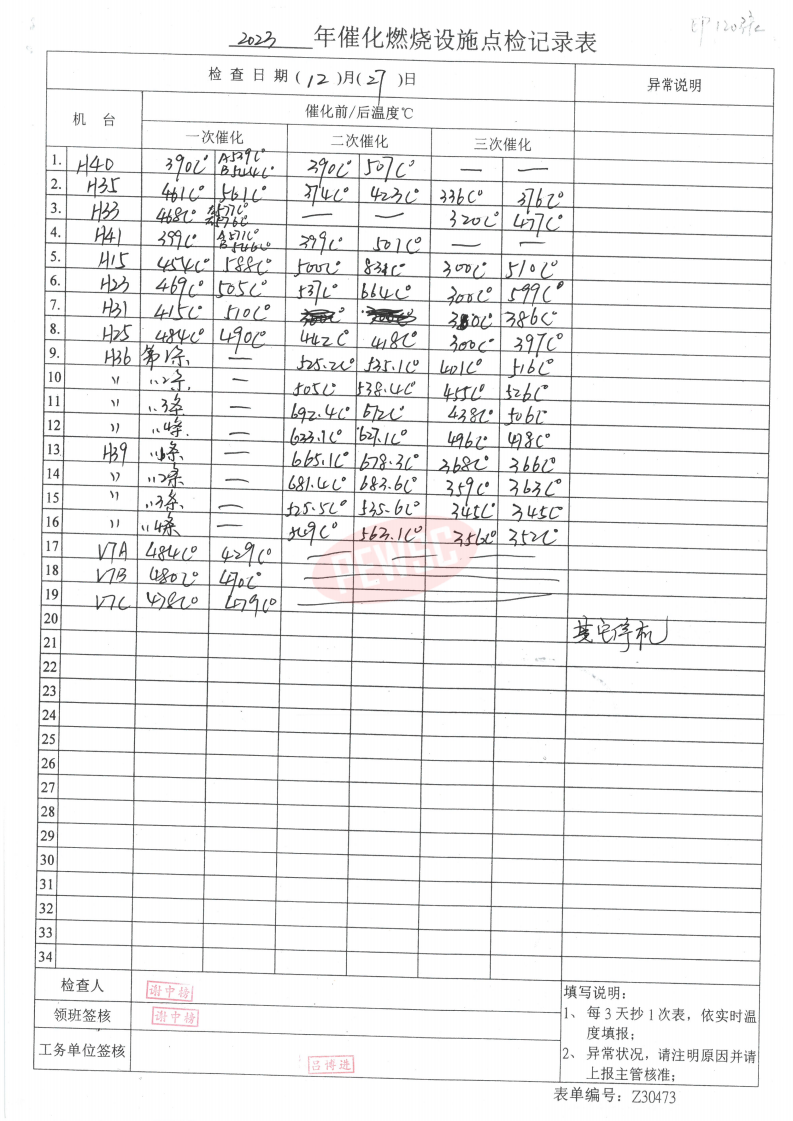 2023 年催化燃烧设施点检记录表
检查日期(12)月(27)日 异常说明
机台 催化前/后温度℃
一次催化 二次催化 三次催化
1. H40 390C° A539C° B544C° 390C° 507C° — —
2. H35 461C° 561C° 374C° 423C° 336C° 376C°
3. H33 468C° — — 320C° 477C°
4. H41 399C° A571C° B546C° 399C° 501C° — —
5. H15 454C° 588C° 500C° 300C° 510C°
6. H23 469C° 505C° 537C° 664C° 300C° 599C°
7. H31 415C° 510C° 386C°
8. H25 484C° 490C° 442C 418C° 300C 397C°
9. H36 第1条 — 525.2C° 535.1C° 401C° 516C°
10 〃 〃2条 — 505C° 538.4C° 455C° 526C°
11 〃 〃3条 — 692.4C° 672C° 438C° 506C°
12 〃 〃4条 — 633.1C° 627.1C° 496C° 478C°
13 H39 〃1条 — 665.1C° 678.3C° 368C° 366C°
14 〃 〃2条 — 681.4C° 683.6C° 359C° 363C°
15 〃 〃3条 — 525.5C° 535.6C° 345C° 345C°
16 〃 〃4条 — 549C° 563.1C° 356C° 352C°
17 V7A 484C° 429C° —
18 V7B 480C° 470C° —
19 V7C 478C° 479C° —
PEWSC
20
其它停机
21
22
23
24
25
26
27
28
29
30
31
32
33
34
检查人 谢中榜
领班签核 谢中榜
工务单位签核 吕博进
填写说明:
1、每3天抄1次表，依实时温
度填报；
2、异常状况，请注明原因并请
上报主管核准；
表单编号：Z30473